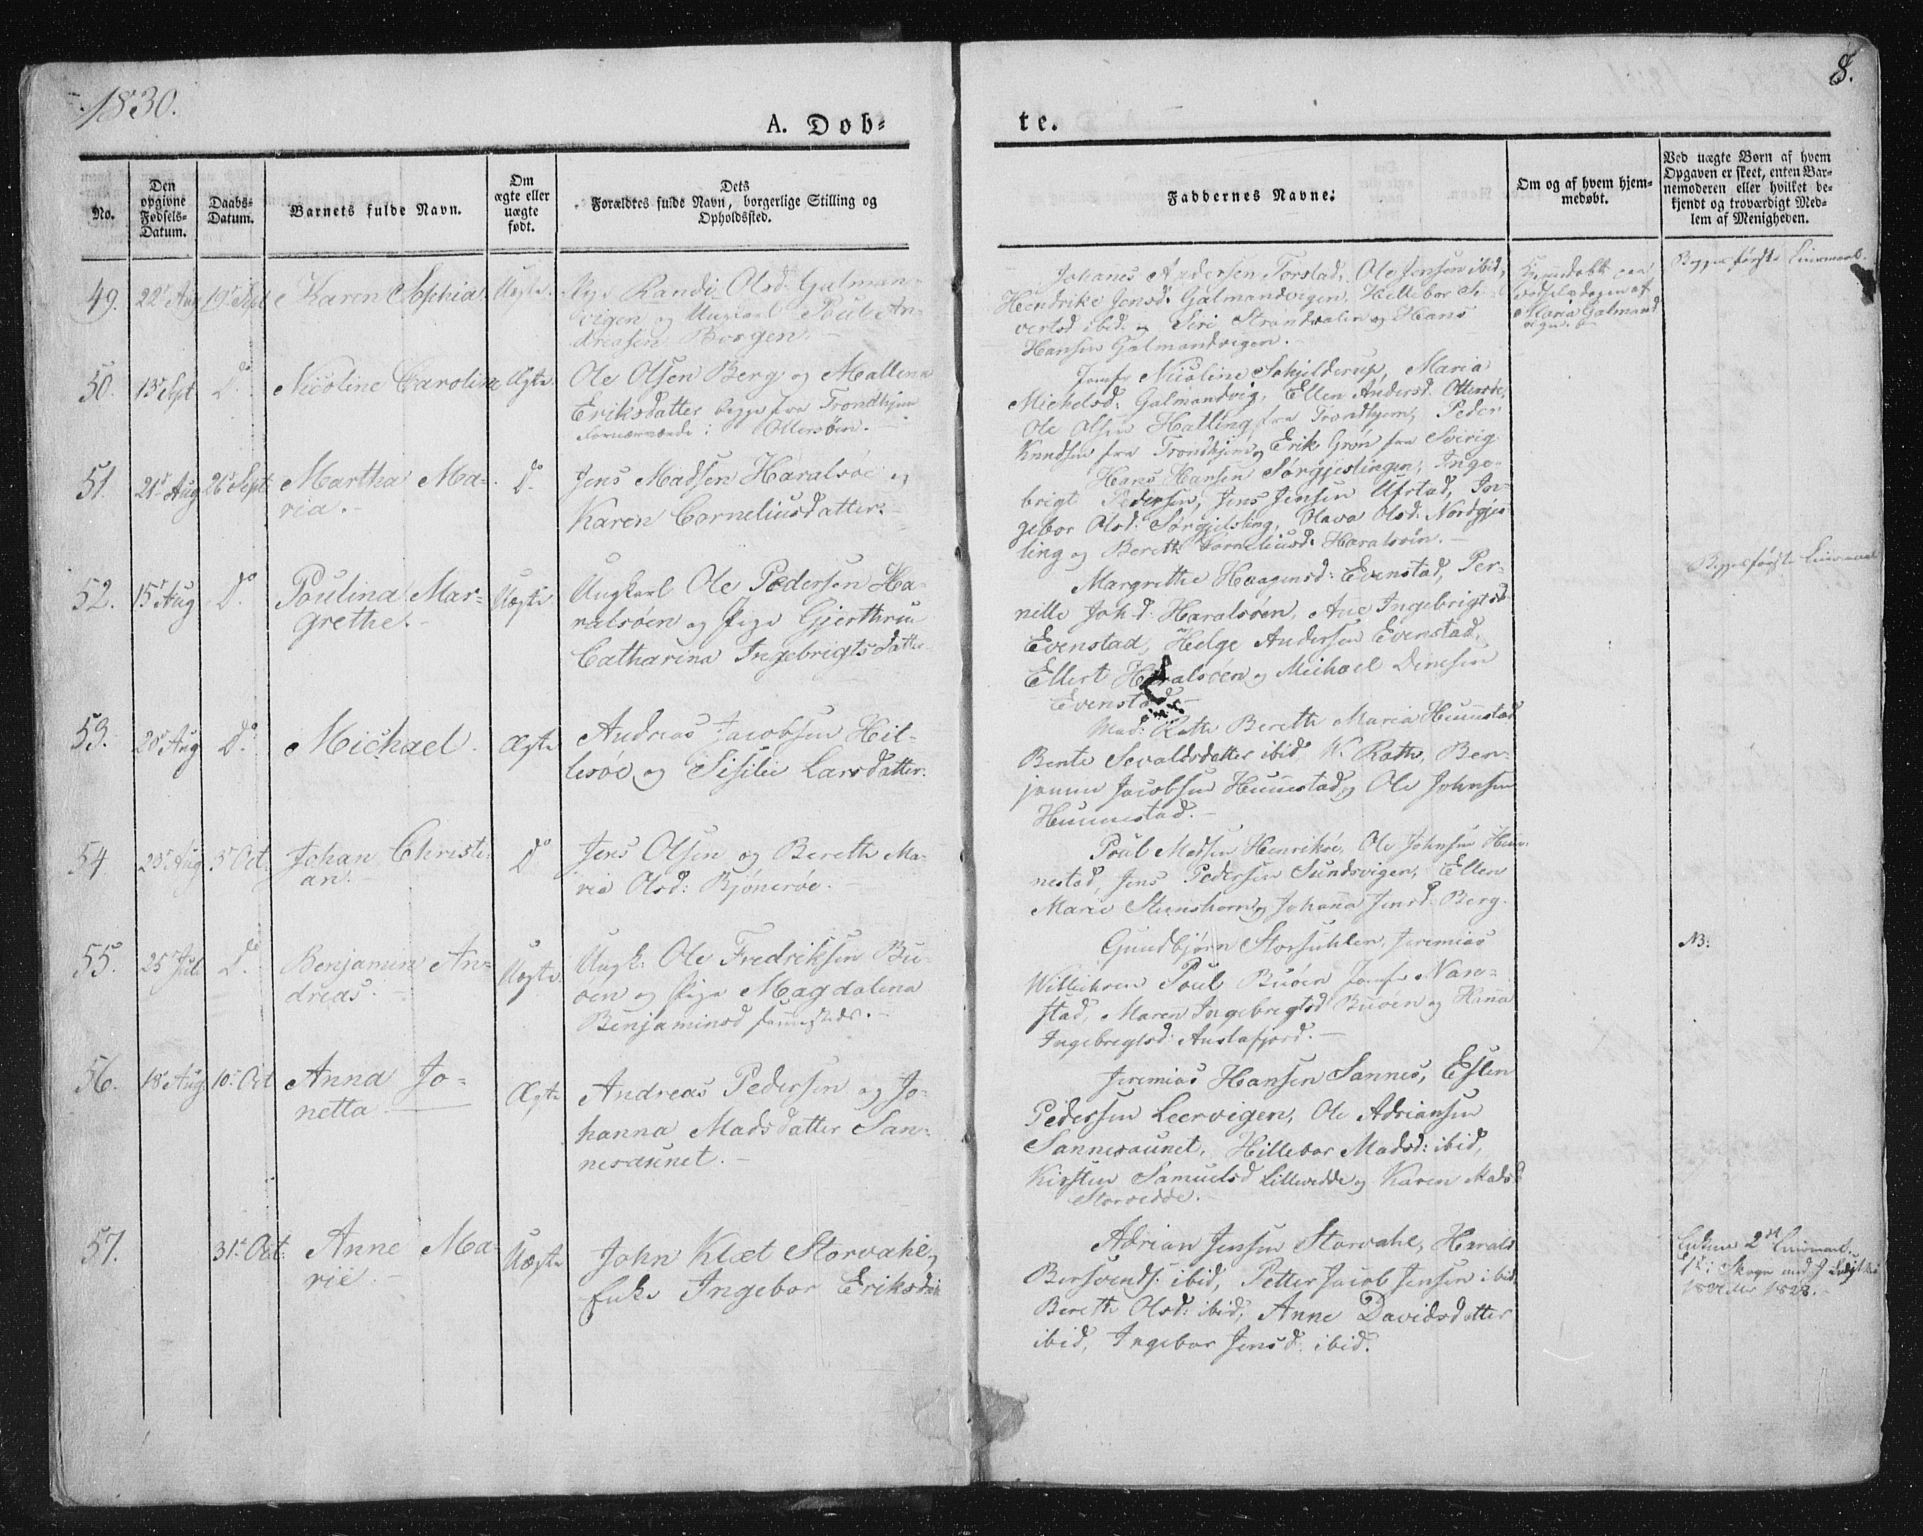 1830.
8.
A. Dob-
te.
No.
Den
opgivne
Fødsels-
Datum.
Daabs-
Datum.
Barnets fulde Navn.
Om
ægte eller
uægte
født.
Dets
Forældres fulde Navn, borgerlige Stilling og
Opholdssted.
Faddernes Navne:
Om og af hvem hjem-
medøbt.
Ved uægte Børn af hvem
Opgaven er skeet, enten Bar-
nemoderen eller hvilket be-
kjendt og troværdigt Med-
lem af Menigheden.
49. 22 Aug 19 Sept Karen Sophia Uægte. Pige Randi Olsd: Galman-
vigen og Ungkarl Poul An-
dreasen Borgen.
Johanes Andersen Torstad, Ole Jensen ibid,
Hendrike Jensd: Galmandvigen, Hillebor Si-
vertsd ibid og Siri Strandvalen og Hans
Hansen Galmandvigen.
Hjemdøbt paa
Fødselsdagen af
Maria Galmand
vigen
Begges første Leiermaal.
50. 13 Sept Do. Nicoline Carolina Ægte. Ole Olsen Berg og Mallena
Eriksdatter begge fra Trondhjem
Fornærværende i Ottersøen.
Jomfr Nicoline Schjelderup, Maria
Michelsd: Galmandvig, Ellen Andersd. Ottersøe,
Ole Olsen Halling fra Trondhjem, Peder
Knudsen fra Trondhjem og Erik Grøn fra Sverig
51. 21 Aug 26 Sept. Martha Ma-
ria.
Do. Jens Madsen Haralsøe og
Karen Corneliusdatter.
Hans Hansen Sørgjeslingen, Inge-
brigt Pedersen, Jens Jensen Ufstad, In-
gebor Olsd: Sørgjesling, Olava Olsd: Nordgjes
ling og Bereth Corneliusd: Haralsøin.
52. 15 Aug Do. Paulina Mar-
grethe.
Uægte Ungkarl Ole Pedersen Ha-
ralsøen og Pige Gjerthru
Catharina Ingebrigtsdatter
Margrethe Haagensd: Evenstad, Per-
nille Johd: Haralsøen, Ane Ingebrigtsd
Evenstad, Helge Andersen Evenstad,
Ellert Haralsøen og Michael Dinesen
Evenstad
Begges første Leiermaal
53. 20 Aug Do. Michael. Ægte Andreas Jacobsen Hil-
lesøe og Sisilie Larsdatter.
Mad: Rath Bereth Maria Hunnestad
Bente Sevaldsdatter ibid, W. Rath, Ben-
jamin Jacobsen Hunnestad og Ole Johnsen
Hunnestad.
54 23 Aug 3 Oct. Johan Christi-
an.
Do Jens Olsen og Bereth Ma-
ria Olsd: Bjønerøe.
Poul Madsen Henriksøe, Ole Johnsen Hun-
nestad, Jens Pedersen Sundsvigen, Ellen
Marie Steenshorn og Johana Jensd: Berg.
55. 25 Jul Do. Benjamin An-
dreas.
Uægte Ungk: Ole Fredriksen Bu-
øen og Pige Magdalena
Benjaminsd sammesteds.
Gundbjørn Storsuhlen, Jeremias
Willichsen Poul Buøen Jomfr Nær-
stad, Maren Ingebregtsd Buøen og Hana
Ingebregtsd: Austafjord.
NB.
56. 18 Aug. 10 Oct Anna Jo-
netta
Ægte Andreas Pedersen og Jo-
hanna Madsdatter San-
nesaunet.
Jeremias Hansen Sannes, Eslen
Pedersen Leervigen, Ole Adriansen
Sannesaunet, Hillebor Madsd: ibid,
Kirsten Samuelsd Lillevedde og Karen Madsd
Storvedde.
57. 31 Oct. Anne Ma-
rie.
Uægte John Klæt Storvahl og
Enke Ingebor Eriksdatter
Adrian Jensen Storvahl, Harald
Bersvends: ibid, Petter Jacob Jensen ibid,
Bereth Olsd: ibid, Anne Davidsdatter
ibid, Ingebor Jensd. ibid.
Enkens 2det Leiermaal.
1828.